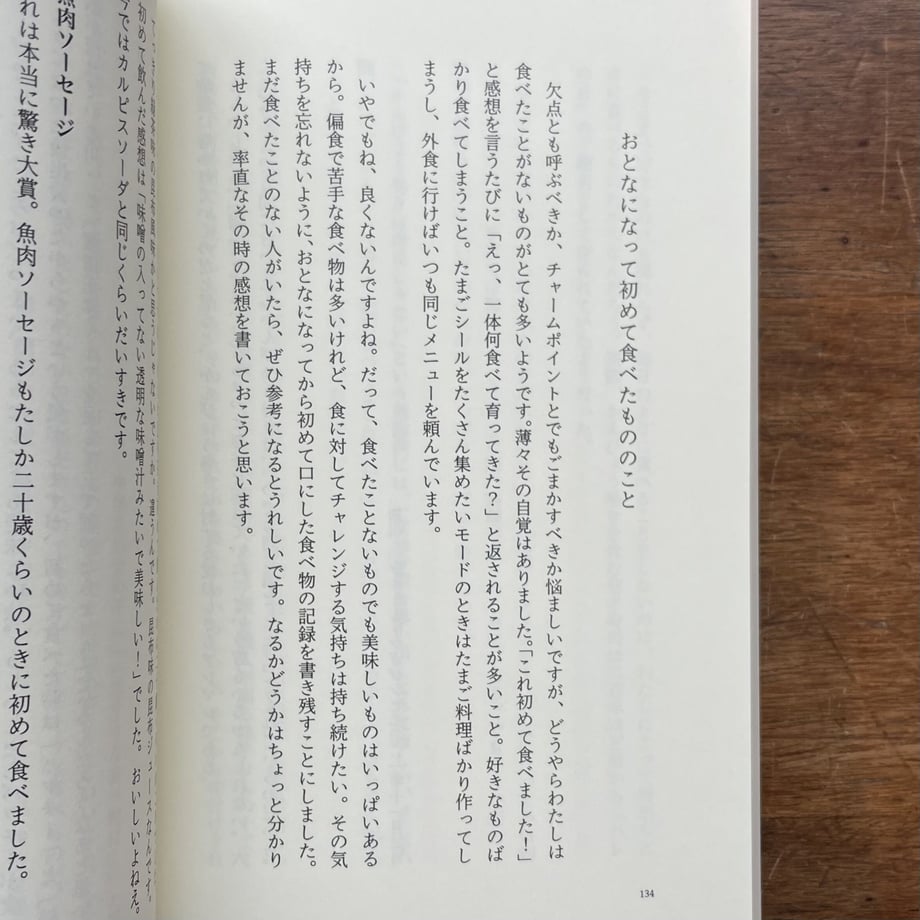 おとなになって初めて食べたもののこと
欠点とも呼ぶべきか、チャームポイントとでもごまかすべきか悩ましいですが、どうやらわたしは
食べたことがないものがとても多いようです。薄々その自覚はありました。「これ初めて食べました!」
と感想を言うたびに「えっ、一体何食べて育ってきた?」と返されることが多いこと。好きなものば
かり食べてしまうこと。たまごシールをたくさん集めたいモードのときはたまご料理ばかり作ってし
まうし、外食に行けばいつも同じメニューを頼んでいます。
いやでもね、良くないんですよね。だって、食べたことないものでも美味しいものはいっぱいある
から。偏食で苦手な食べ物は多いけれど、食に対してチャレンジする気持ちは持ち続けたい。その気
持ちを忘れないように、おとなになってから初めて口にした食べ物の記録を書き残すことにしました。
まだ食べたことのない人がいたら、ぜひ参考になるとうれしいです。なるかどうかはちょっと分かり
ませんが、率直なその時の感想を書いておこうと思います。
134
違うんです。昆布味の昆布ジュースなんです。
初めて飲んだ感想は「味噌の入ってない透明な味噌汁みたいで美味しい!」でした。おいしいよねえ。
ではカルピスソーダと同じくらいだいすきです。
魚肉ソーセージ
れは本当に驚き大賞。魚肉ソーセージもたしか二十歳くらいのときに初めて食べました。